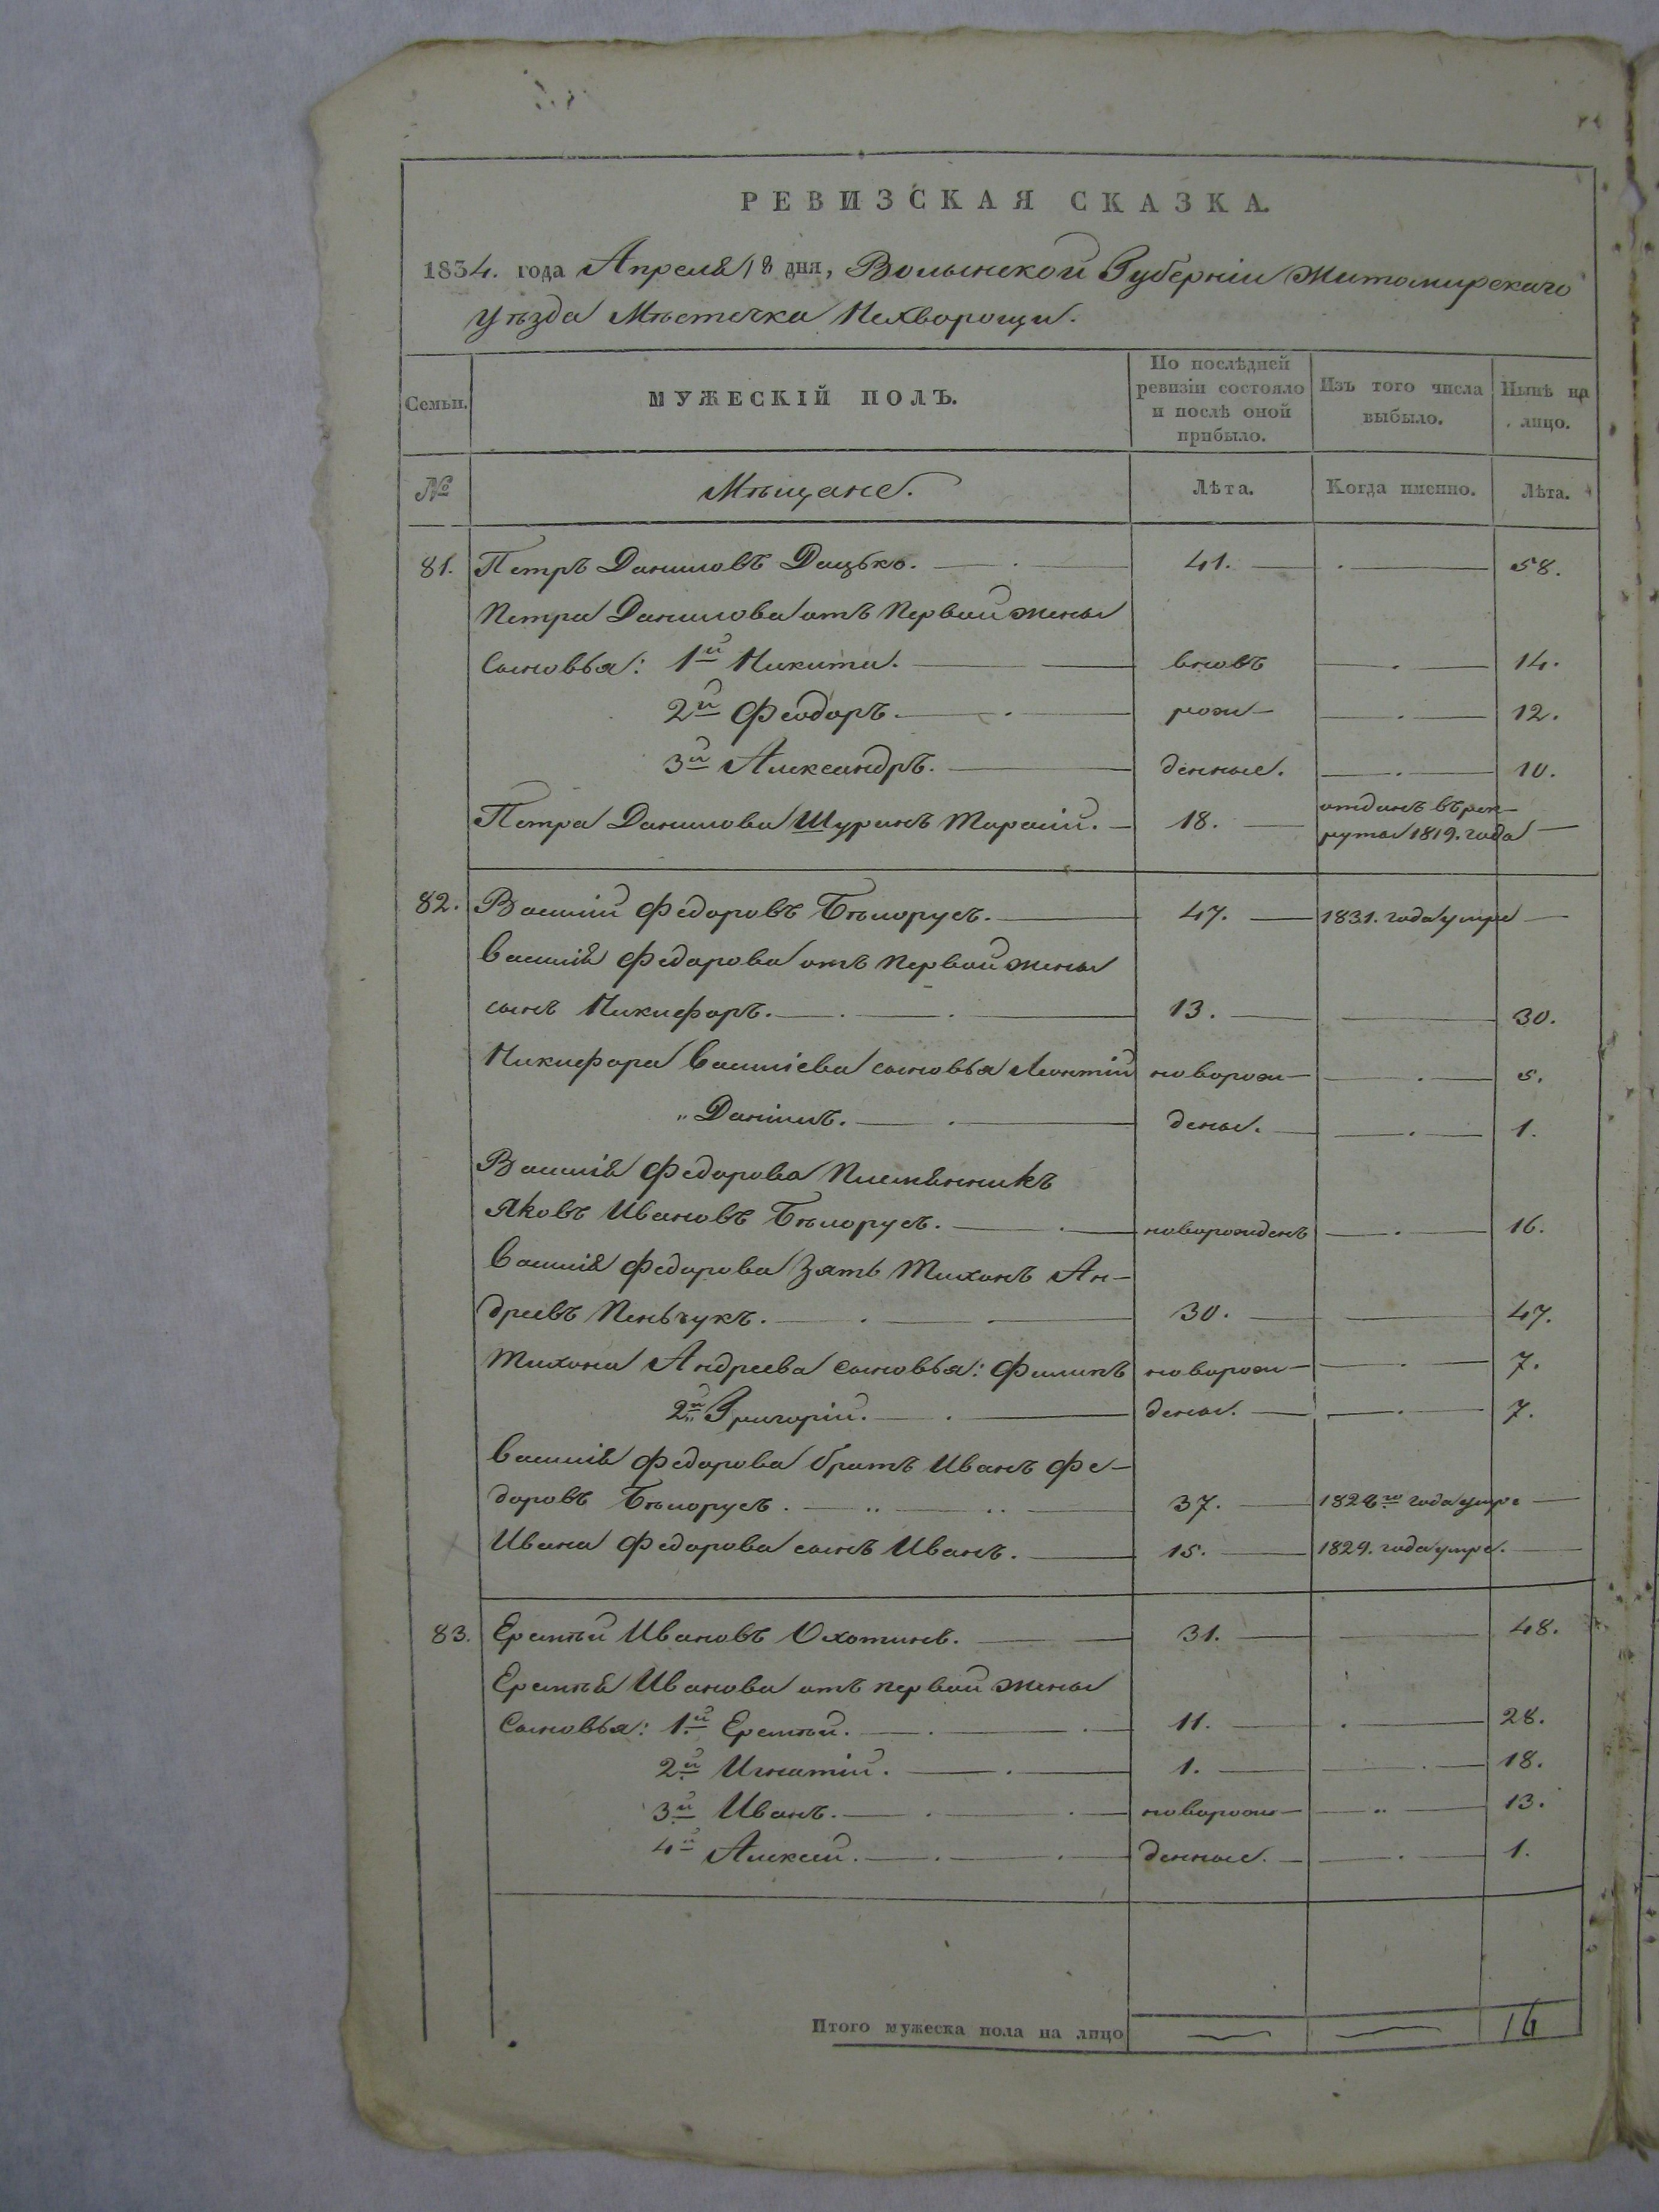 РЕВИЗСКАЯ СКАЗКА.
1834. года Апреля 18 дня, Волынской Губерніи Житомирскаго
Уѣзда Мѣстечка Пехворощи.
Семьи. МУЖЕСКІЙ ПОЛЪ. По послѣдней ревизіи состояло и послѣ оной прибыло. Изъ того числа выбыло. Нынѣ на лицо.
№ Мѣщане. Лѣта. Когда именно. Лѣта.
81. Петръ Даниловъ Дацько. 41. 58.
Петра Данилова отъ первой жены
Сыновья: 1й Никита. вновь 14.
2й Феодоръ. рож- 12.
3й Александръ. денные. 10.
Петра Данилова Шуринъ Тарасій. 18. отданъ въ рек-
руты 1819. года
82. Василій Федоровъ Бѣлорусъ. 47. 1831. года умре
Василія Федорова отъ первой жены
сынъ Никифоръ. 13. 30.
Никифора Василіева сыновья Леонтій новорож- 5.
„ Даніилъ. дены. 1.
Василія Федорова Племянникъ
Яковъ Ивановъ Бѣлорусъ. новорожденъ 16.
Василія Федорова Зять Тихонъ Ан-
дреевъ Пеньчукъ. 30. 47.
Тихона Андреева сыновья: Филипъ новорож- 7.
2й Григорій. дены. 7.
Василія Федорова братъ Иванъ Фе-
доровъ Бѣлорусъ. 37. 1828го года умре
Ивана Федорова сынъ Иванъ. 15. 1829. года умре.
83. Еремѣй Ивановъ Охотинъ. 31. 48.
Еремѣя Иванова отъ первой жены
Сыновья: 1.й Еремѣй. 11. 28.
2.й Игнатій. 1. 18.
3.й Иванъ. новорож- 13.
4й Алексей. денные. 1.
Итого мужеска пола на лицо 16